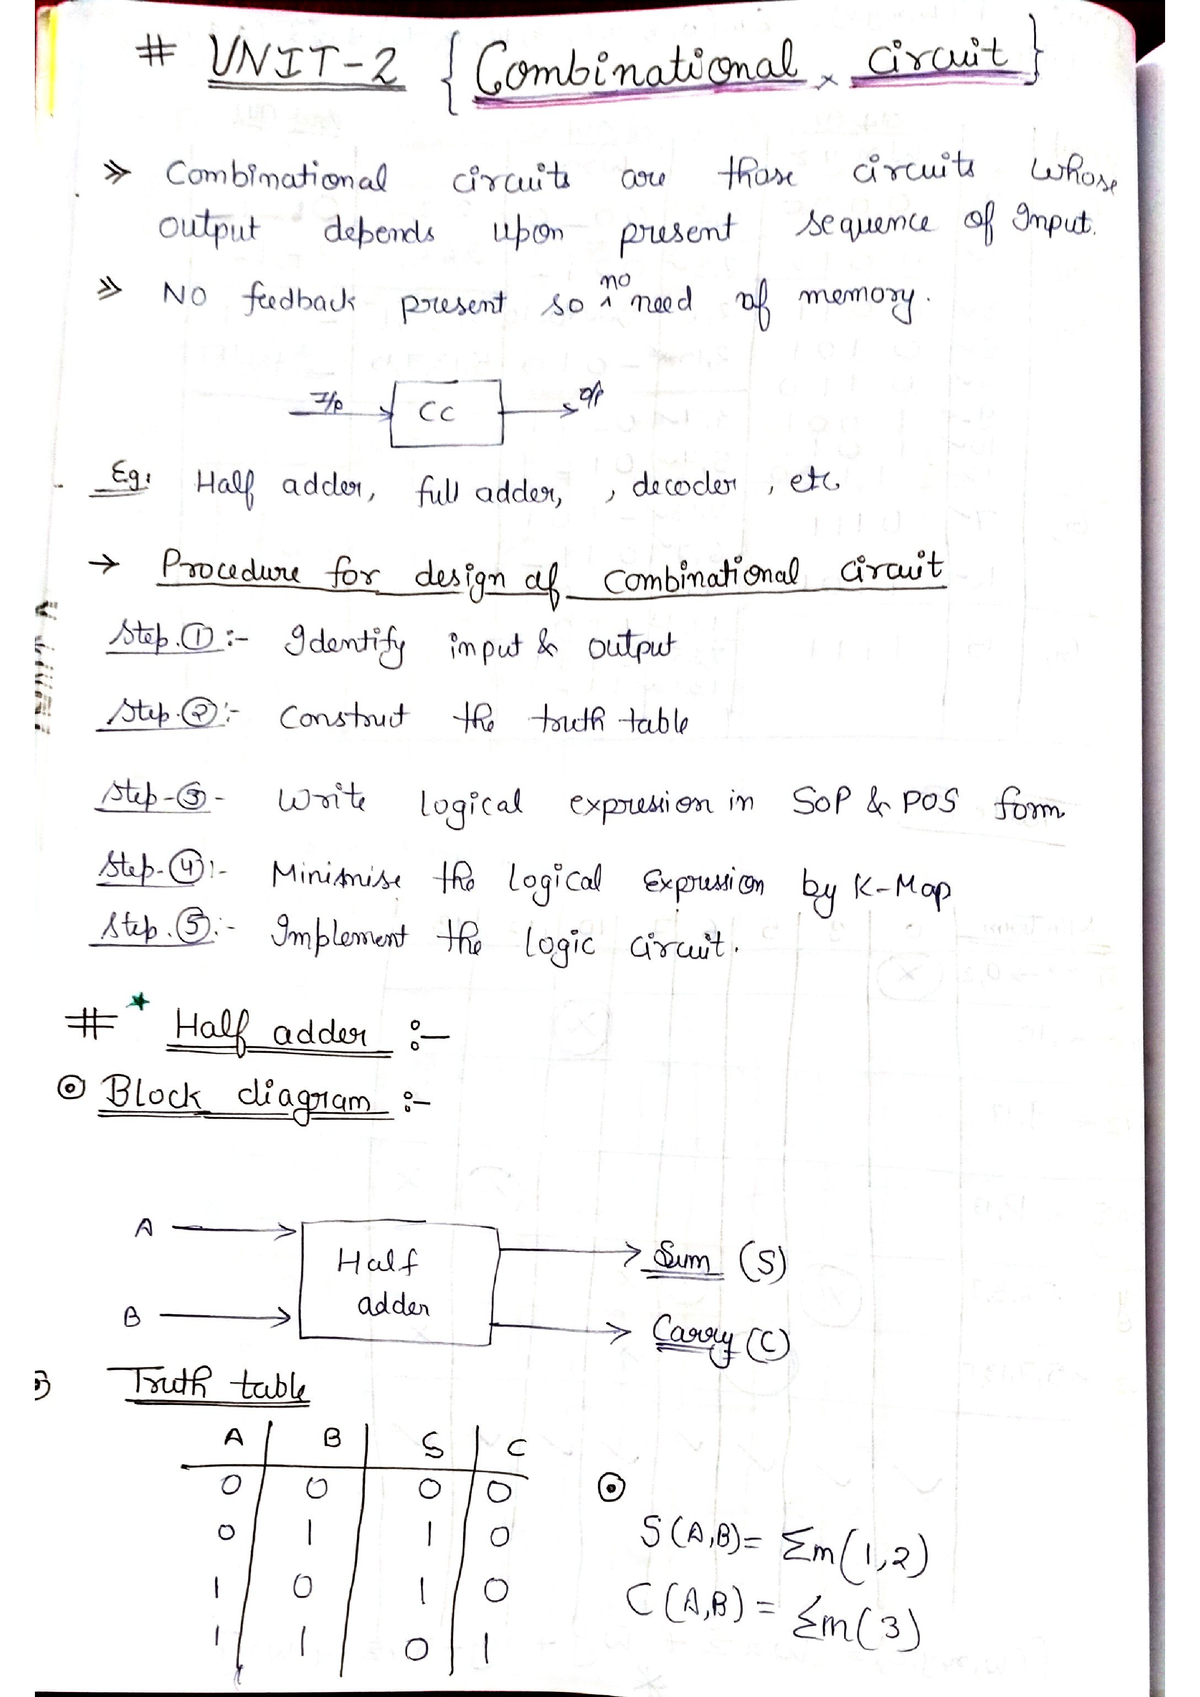 # UNIT-2 { Combinational circuit }
» Combinational circuits are those circuits whose
output depends upon present sequence of Input.
» No feedback present so no need of memory.
I/p CC O/p
Eg: Half adder, full adder, , decoder, etc.
→ Procedure for design of combinational circuit
Step.① :- Identify input & output
Step.② :- Construct the truth table
Step-③ - Write logical expression in SOP & POS form
Step-④ :- Minimise the logical Expression by K-Map
Step.⑤ :- Implement the logic circuit.
# * Half adder :-
⊙ Block diagram :-
A → Half adder → Sum (S)
B → → Carry (C)
Truth table
A B S C
0 0 0 0
0 1 1 0
1 0 1 0
1 1 0 1
⊙
S(A,B) = Σm(1,2)
C(A,B) = Σm(3)